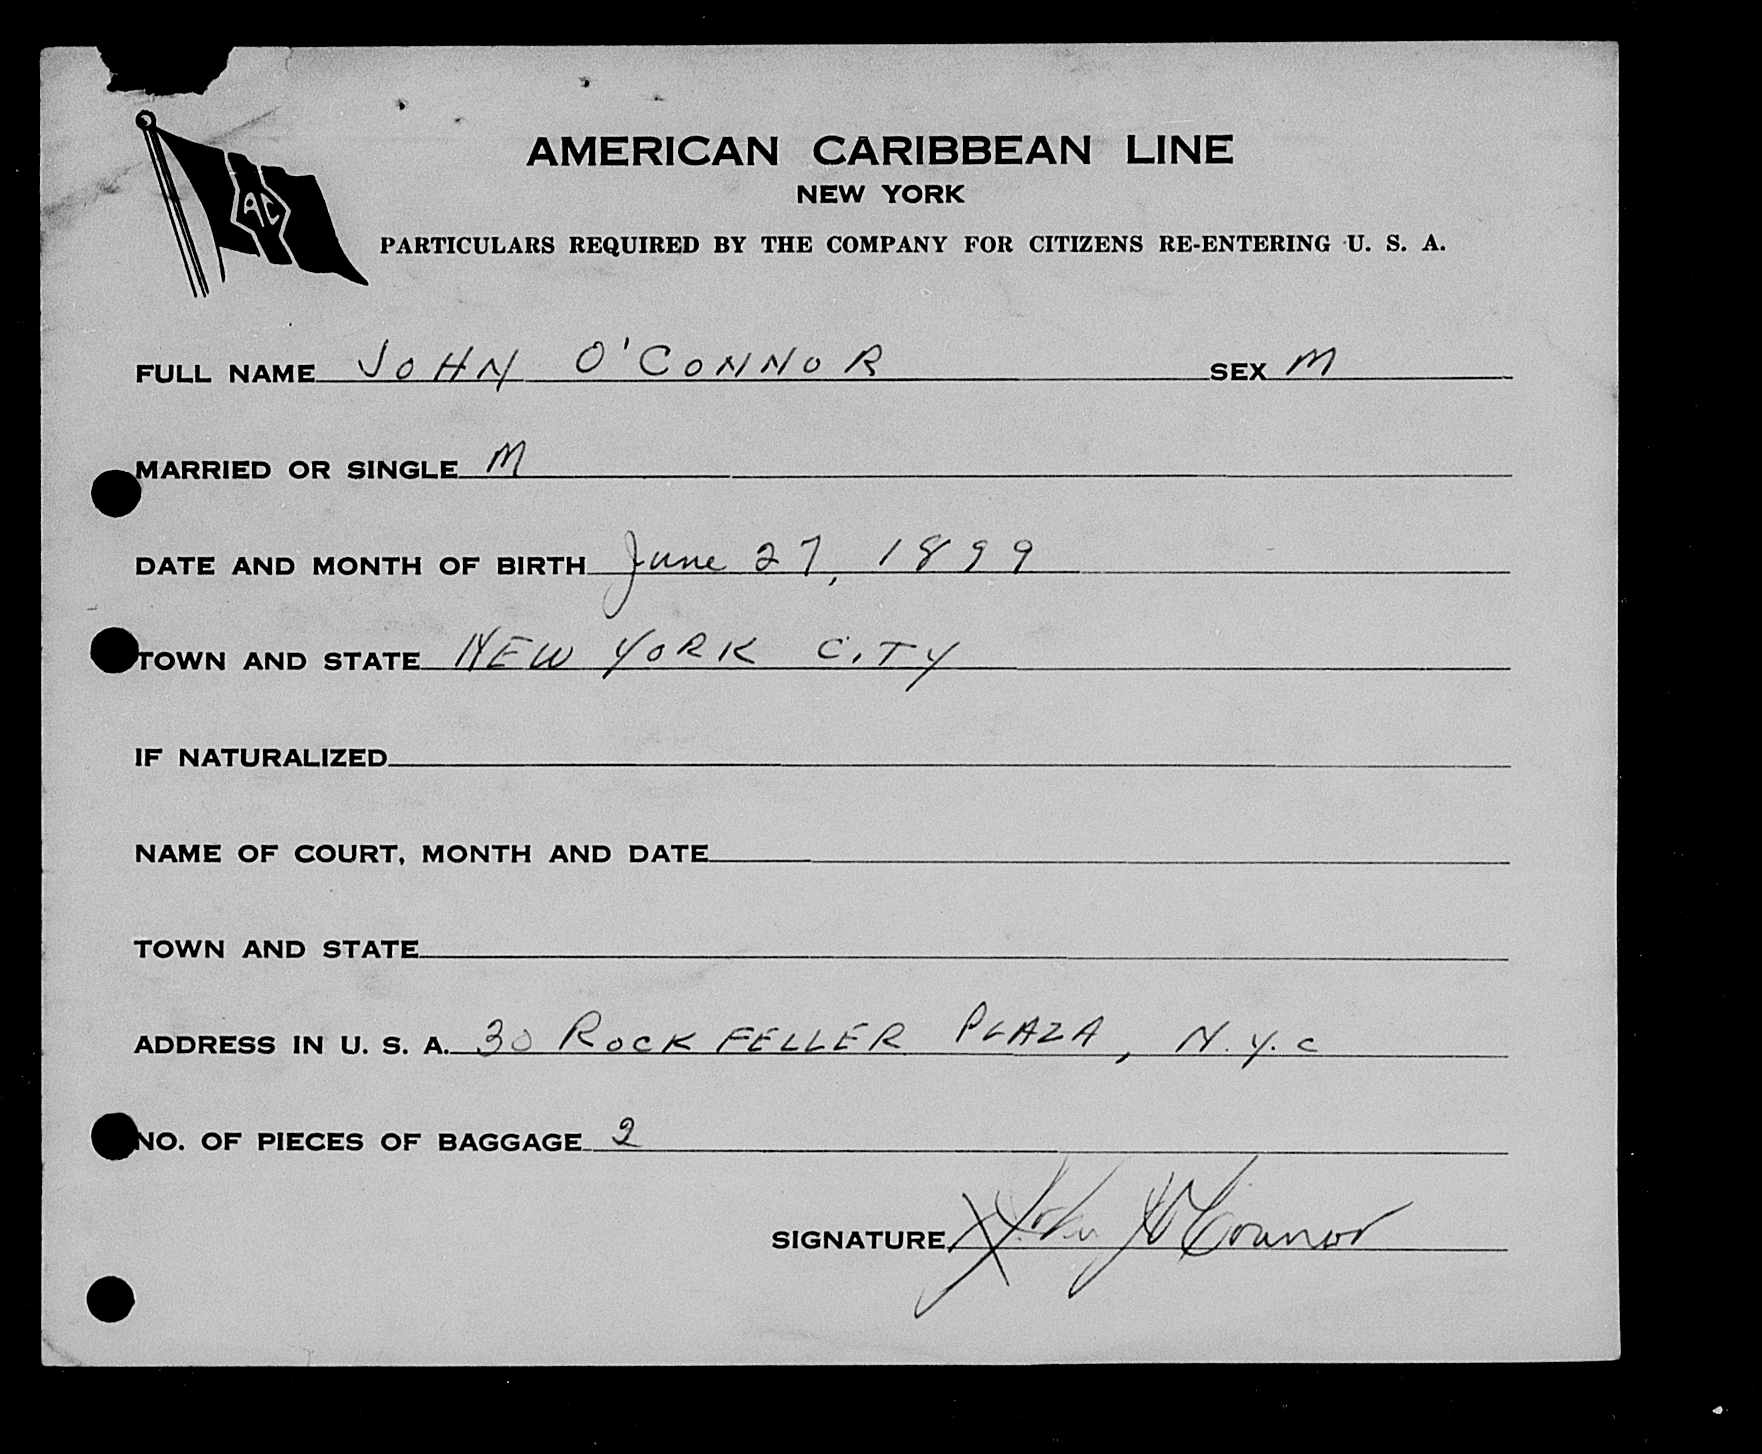 AMERICAN CARIBBEAN LINE
NEW YORK
AC
PARTICULARS REQUIRED BY THE COMPANY FOR CITIZENS RE-ENTERING U. S. A.
FULL NAME JOHN O'CONNOR SEX M
MARRIED OR SINGLE M
DATE AND MONTH OF BIRTH June 27, 1899
TOWN AND STATE NEW YORK CITY
IF NATURALIZED
NAME OF COURT, MONTH AND DATE
TOWN AND STATE
ADDRESS IN U. S. A. 30 ROCKFELLER PLAZA, N.Y.C
NO. OF PIECES OF BAGGAGE 2
SIGNATURE X John J O'Connor